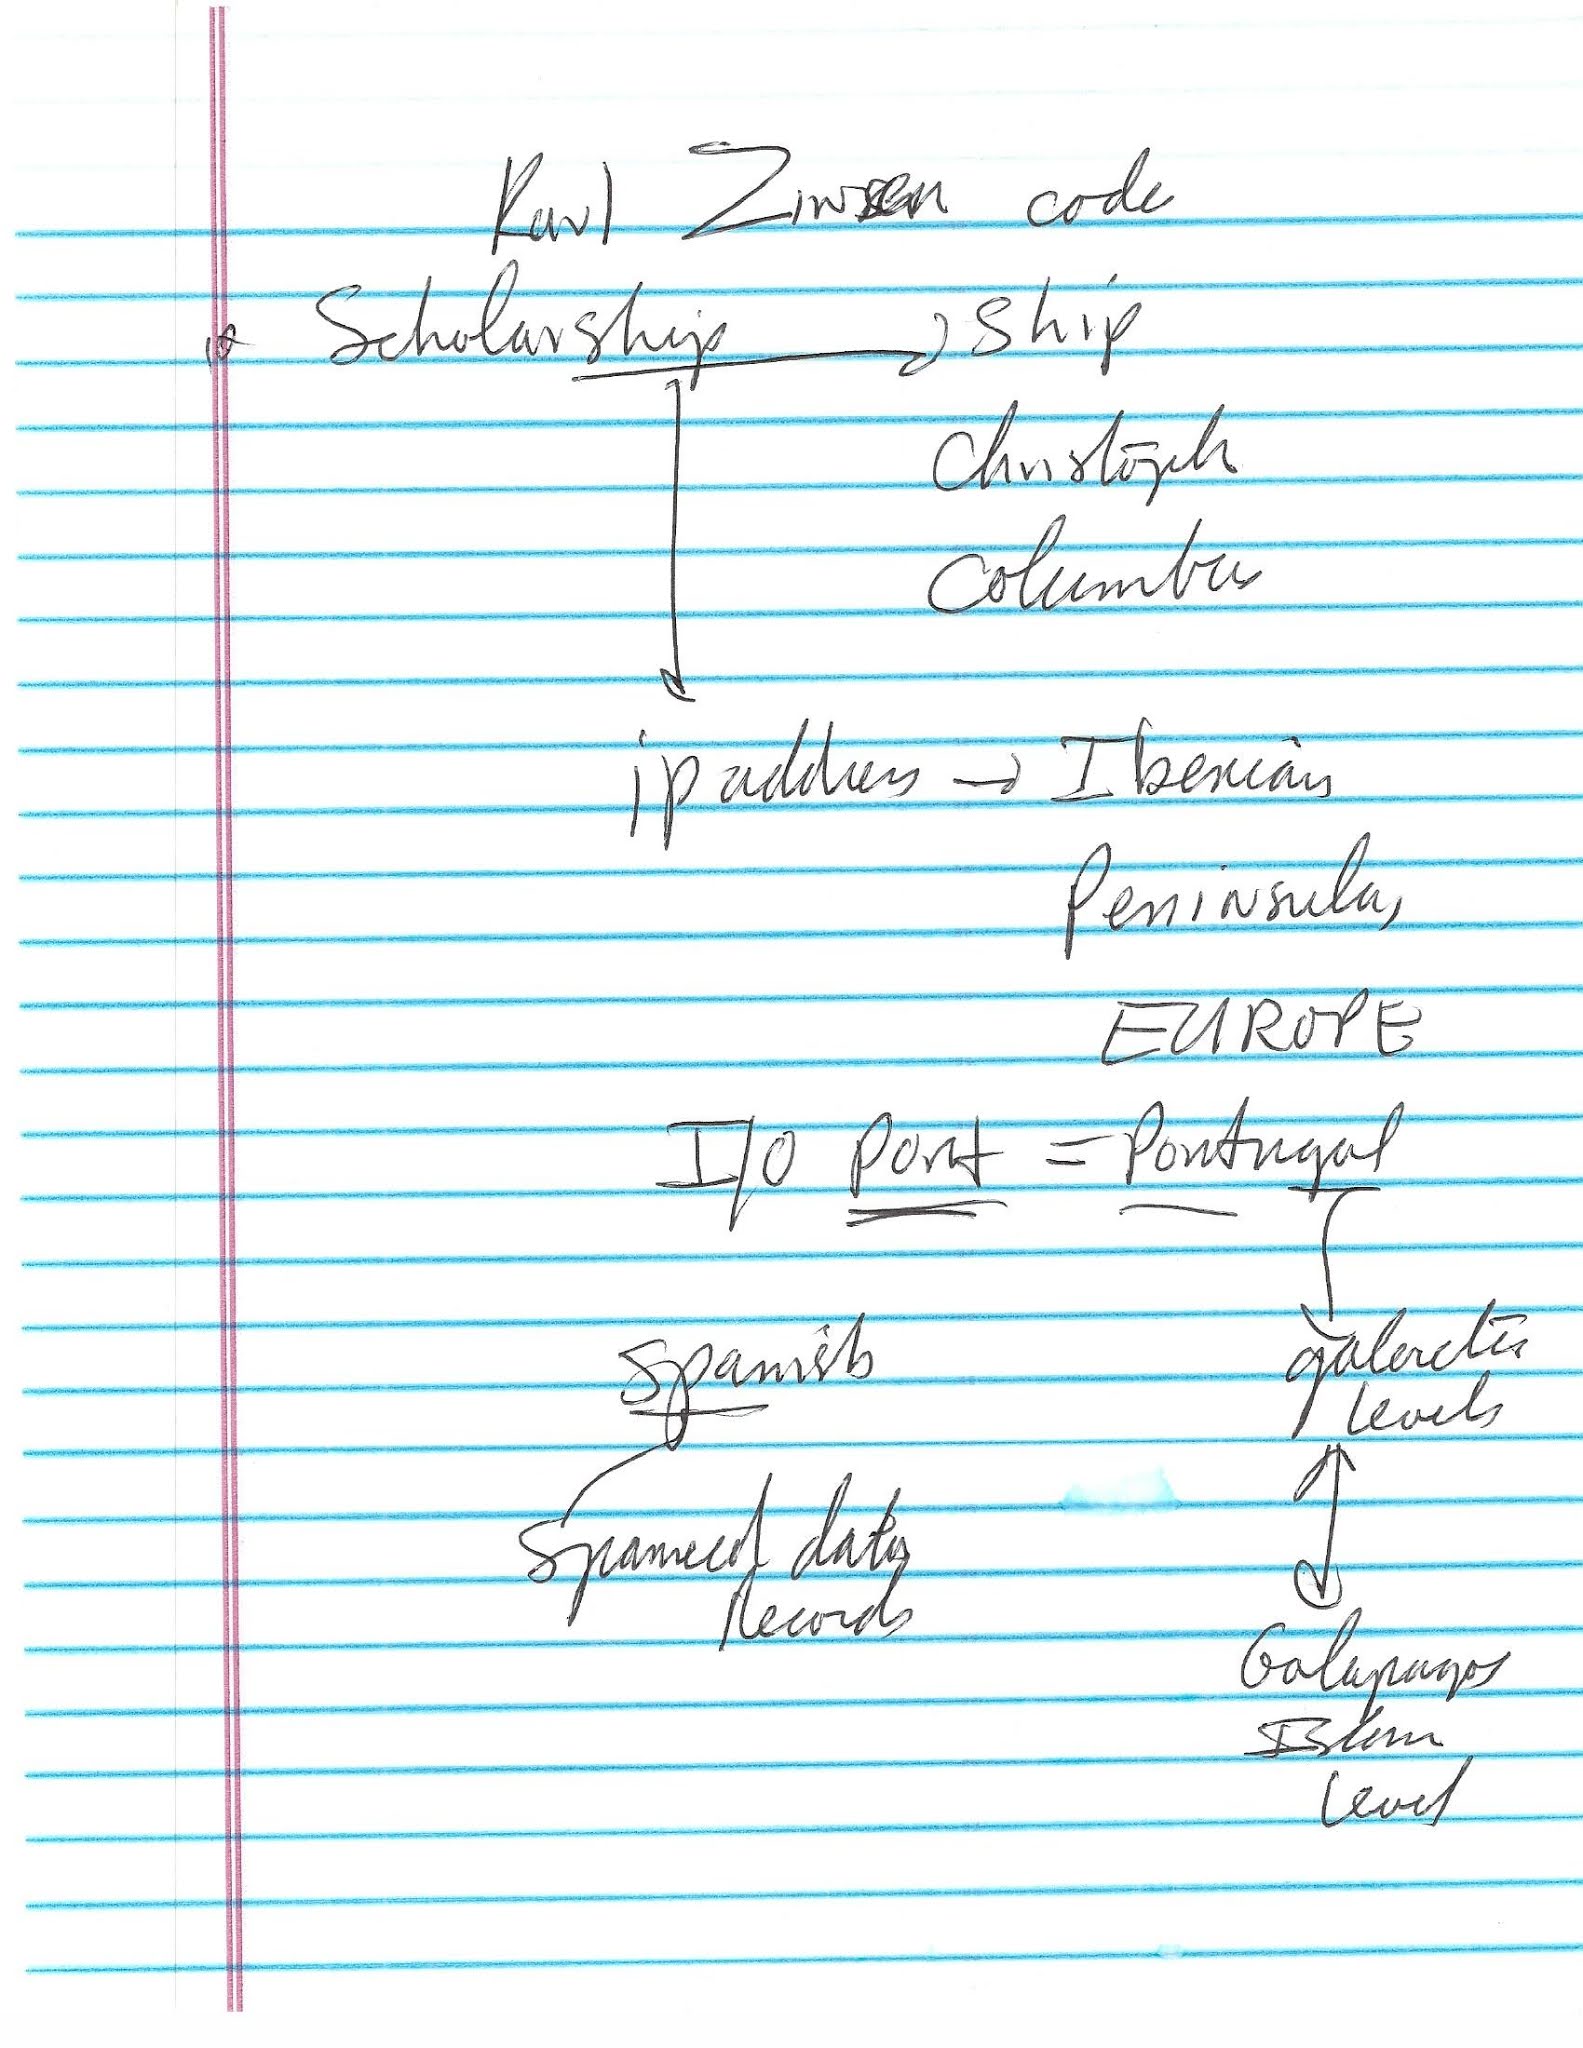 Karl Zinsen code
Scholarship → Ship
Christoph
Columbus
ip address → Iberian
Peninsula,
EUROPE
I/O Port = Portugal
Spanish
galactic
levels
Spamed data
Records
Galapagos
Islan
level